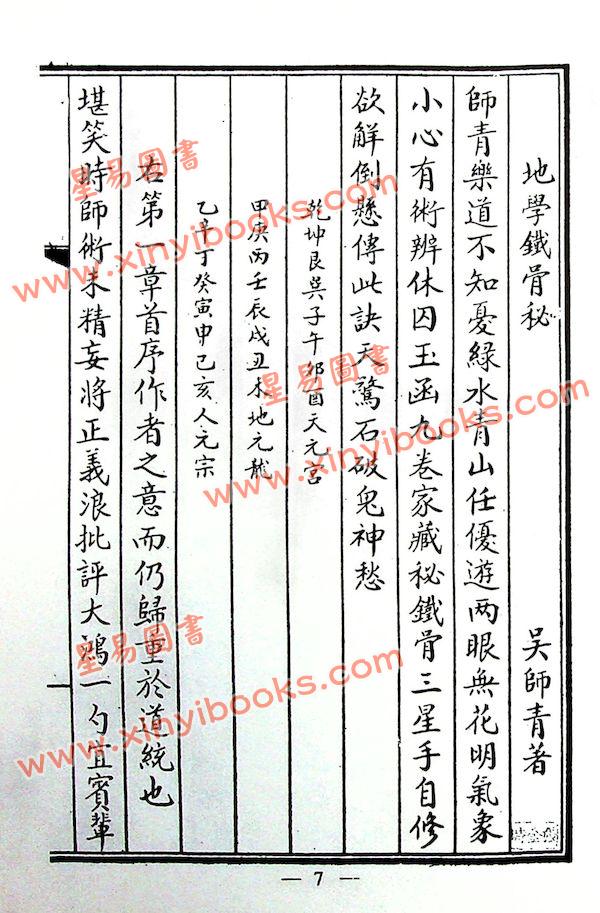 地學鐵骨秘 吴師青著
師青樂道不知憂綠水青山任優遊两眼無花明氣象
小心有術辨休囚玉函九卷家藏秘鐵骨三星手自修
欲解倒懸傳此訣天驚石破鬼神愁
乾坤艮巽子午卯酉天元宮
甲庚丙壬辰戌丑未地元龍
乙辛丁癸寅申巳亥人元宗
右第一章首序作者之意而仍歸重於道統也
堪笑時師術未精妄將正義浪批評大鴻一勺宜賓輩
— 7 —
星易圖書
www.xinyibooks.com
星易圖書
www.xinyibooks.com
星易圖書
www.xinyibooks.com